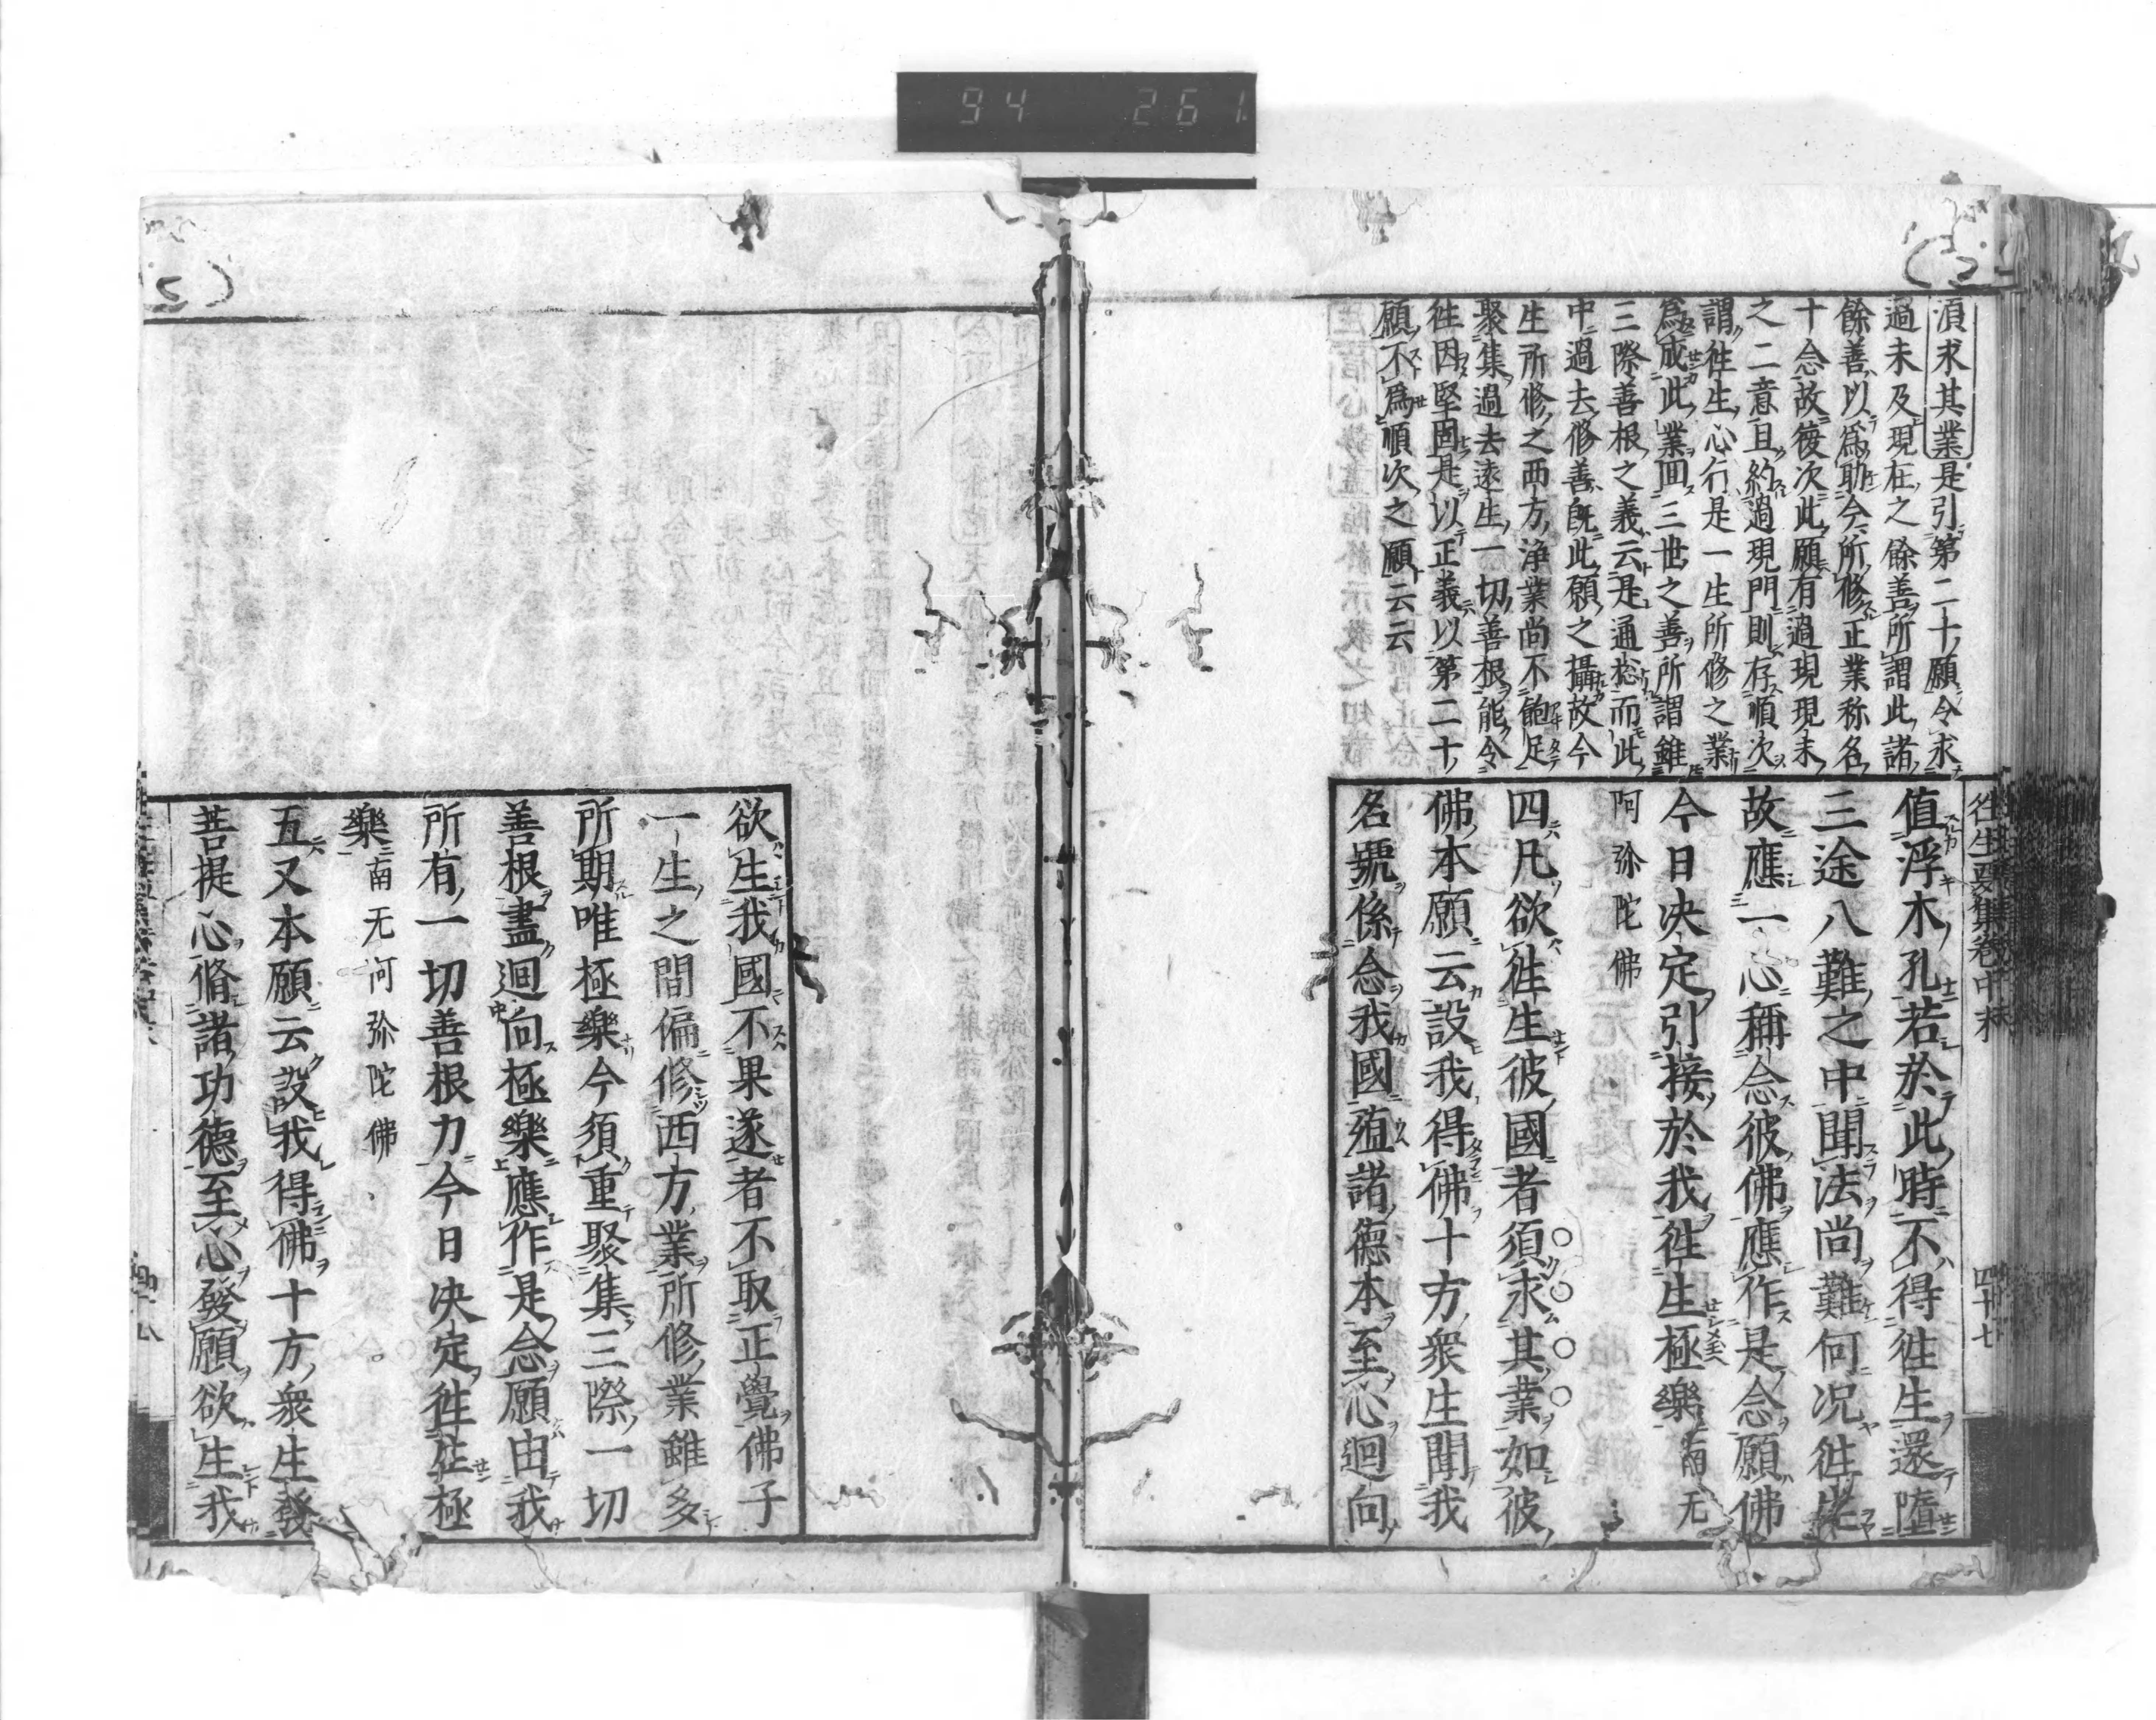 94 261
湏求其業是引第二十願令求
過未及現在之餘善所謂此諸
餘善以爲助今所修正業称名
十念故復次此願有過現現未
之二意且約過現門則存順次
謂徃生心行是一生所修之業
爲成此業回三世之善所謂雖
三際善根之義云是通捴而此
中過去修善既此願之攝故今
生所修之西方浄業尚不飽足
聚集過去遠生一切善根能令
徃因堅固是以正義以第二十
願不爲順次之願云云
徃生要集卷中末
四十七
值浮木孔若於此時不得徃生還墮
三途八難之中聞法尚難何况徃生
故應一心稱念彼佛應作是念願佛
今日决定引接於我徃生極樂南无
阿弥陀佛
四凡欲徃生彼國者須求其業如彼
佛本願云設我得佛十方衆生聞我
名號係念我國殖諸德本至心迴向
欲生我國不果遂者不取正覺佛子
一生之間偏修西方業所修業雖多
所期唯極樂今須重聚集三際一切
善根盡迴向極樂應作是念願由我
所有一切善根力今日决定徃生極
樂南无阿弥陀佛
五又本願云設我得佛十方衆生發
菩提心脩諸功德至心發願欲生我